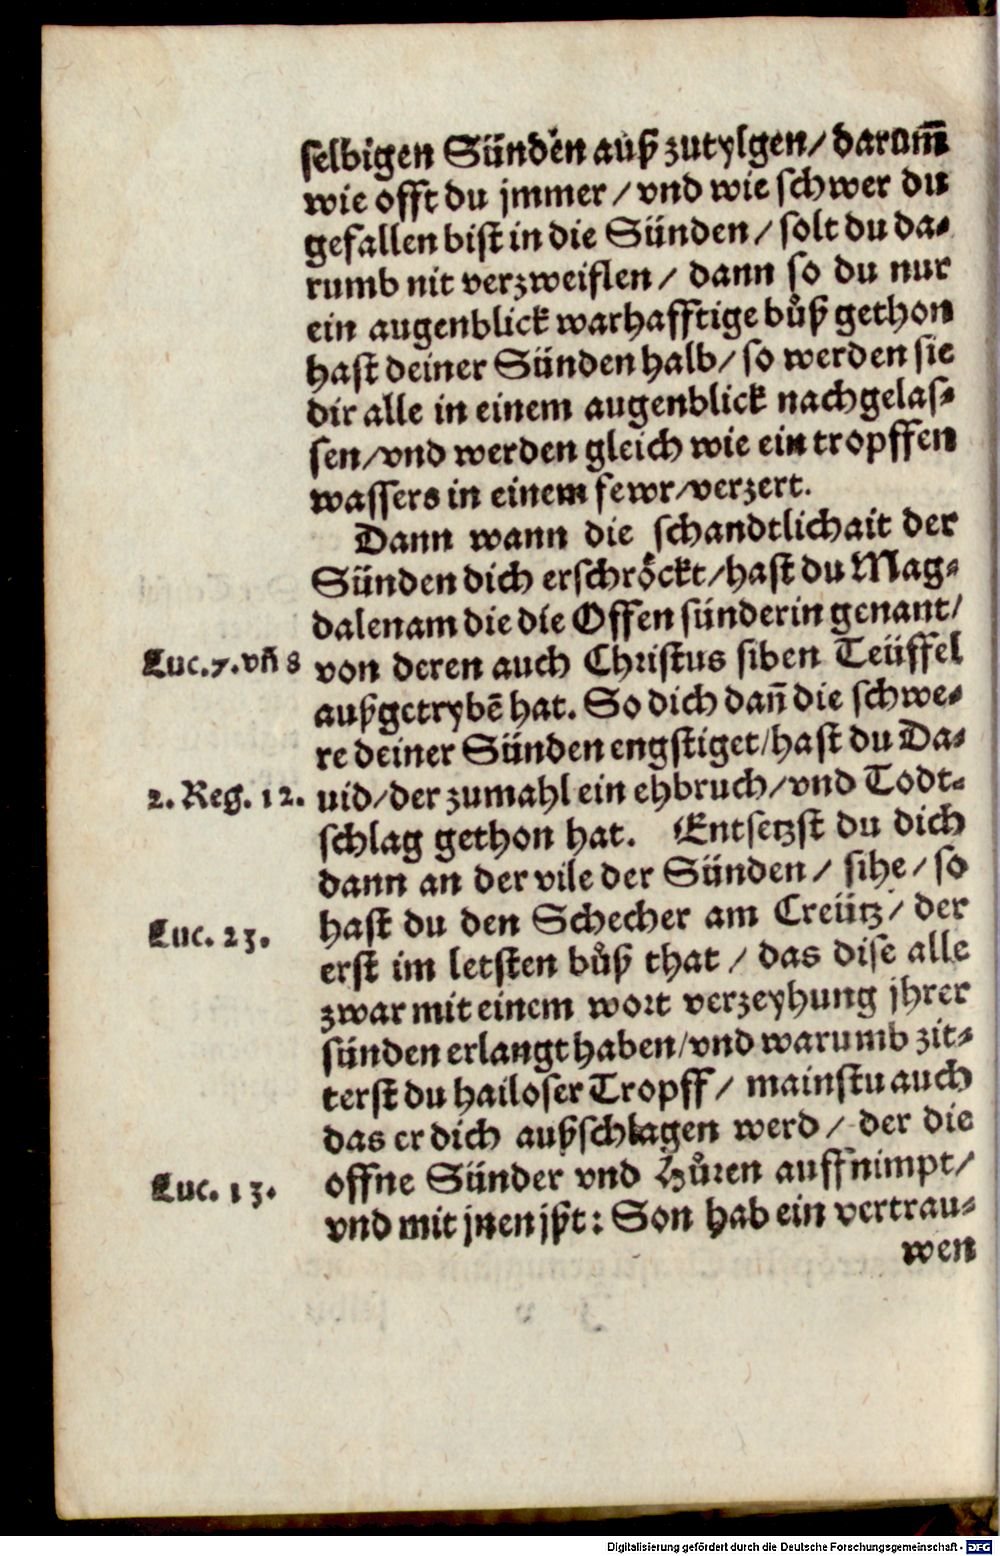 selbigen Sünden auß zutylgen/ darum̃
wie offt du jmmer/ vnd wie schwer du
gefallen bist in die Sünden/ solt du da⸗
rumb nit verzweiflen/ dann so du nur
ein augenblick warhafftige bůß gethon
hast deiner Sünden halb/ so werden sie
dir alle in einem augenblick nachgelas⸗
sen/ vnd werden gleich wie ein tropffen
wassers in einem fewr/ verzert.
Dann wann die schandtlichait der
Sünden dich erschröckt/ hast du Mag⸗
dalenam die die Offen sünderin genant/
Luc. 7. vñ 8 von deren auch Christus siben Teüffel
außgetrybẽ hat. So dich dañ die schwe⸗
re deiner Sünden engstiget/ hast du Da⸗
2. Reg. 12. uid/ der zumahl ein ehbruch/ vnd Todt⸗
schlag gethon hat. Entsetzst du dich
dann an der vile der Sünden/ sihe/ so
Luc. 23. hast du den Schecher am Creütz/ der
erst im letsten bůß that/ das dise alle
zwar mit einem wort verzeyhung jhrer
sünden erlangt haben/ vnd warumb zit⸗
terst du hailoser Tropff/ mainstu auch
das er dich außschlagen werd/ der die
Luc. 13. offne Sünder vnd Hůren auffnimpt/
vnd mit jnen jßt: Son hab ein vertrau⸗
wen
Digitalisierung gefördert durch die Deutsche Forschungsgemeinschaft - DFG